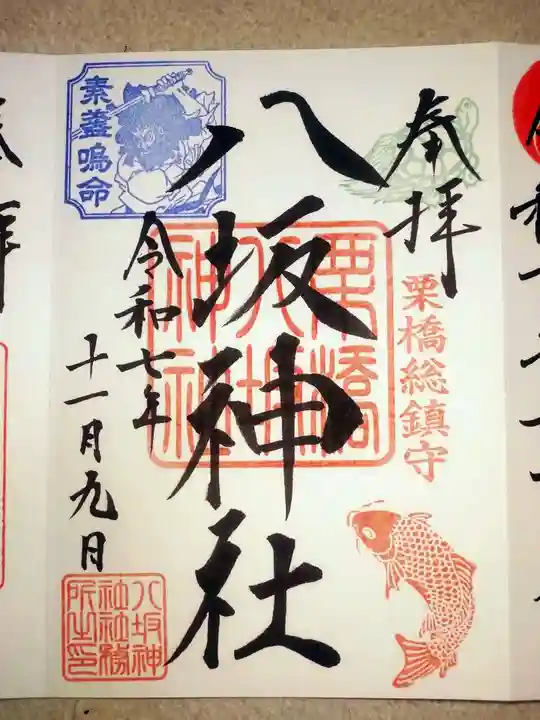 奉拝
栗橋総鎮守
八坂神社
栗橋
八坂
神社
素盞嗚命
令和七年
十一月九日
八坂神
社社務
所之印